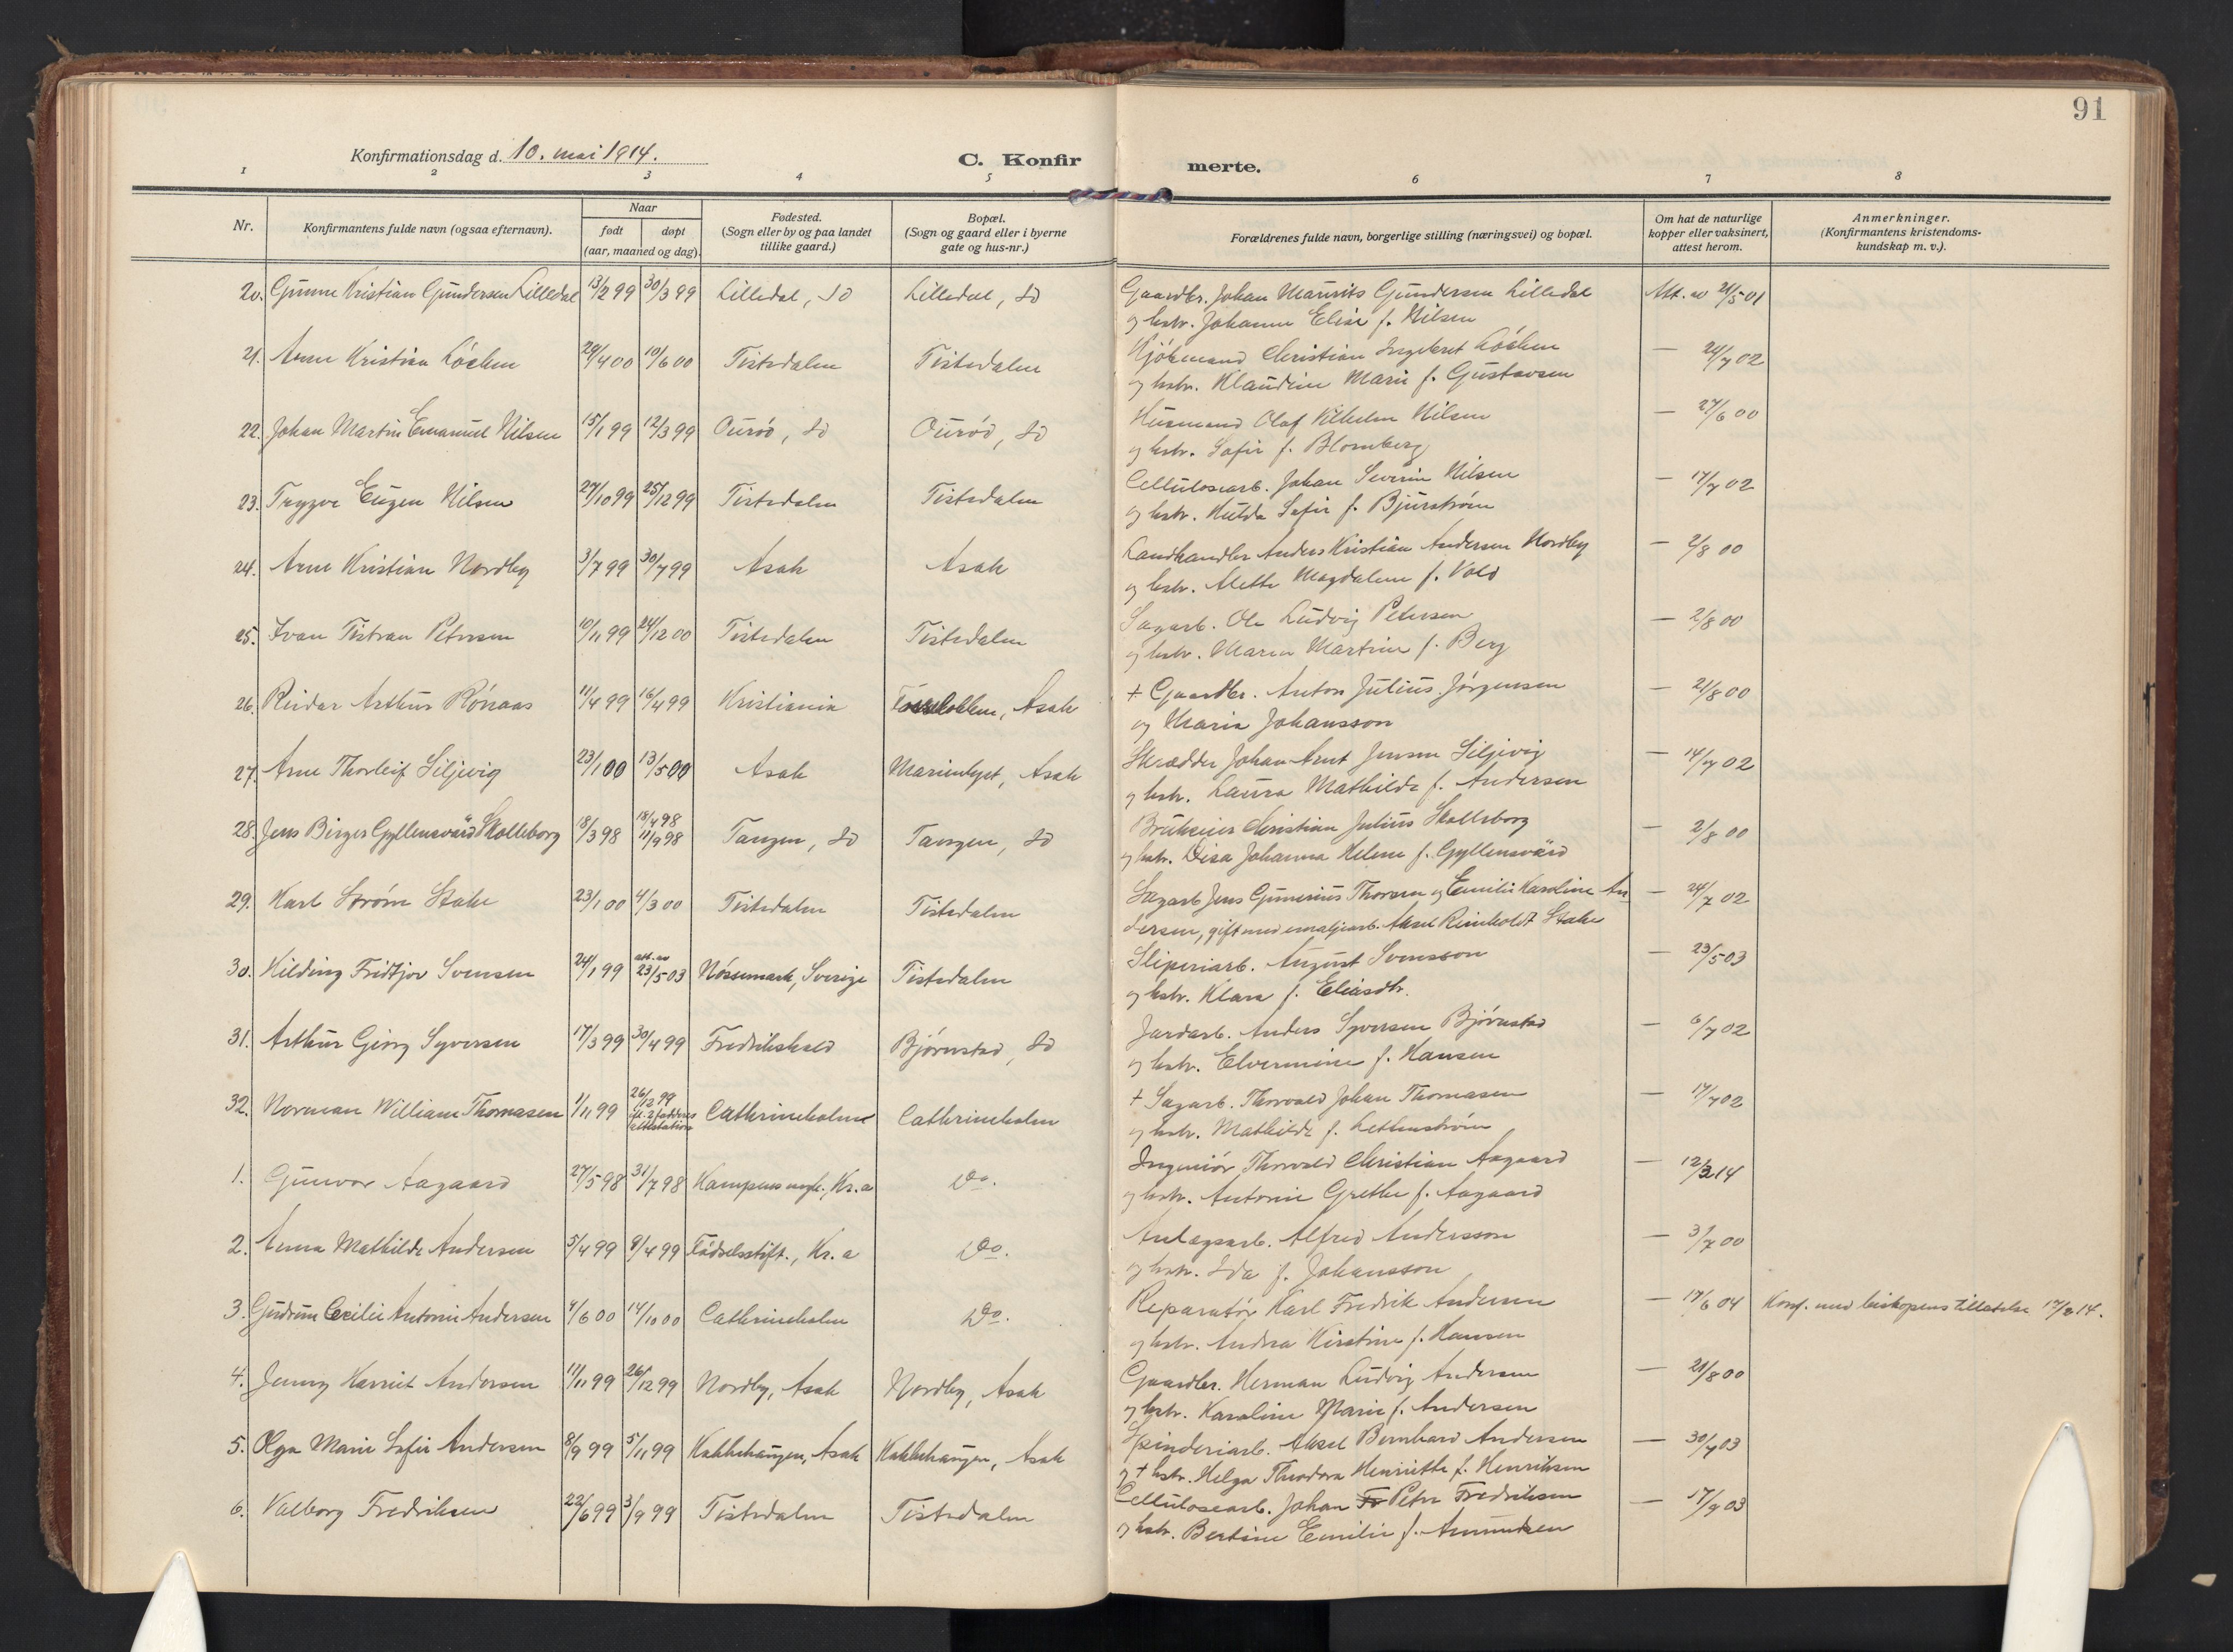 91
Konfirmationsdag d. 10. mai 1914.
C. Konfir
merte.
1 2 3 4 5 6 7 8
Nr.
Konfirmantens fulde navn (ogsaa efternavn).
Naar
født
døpt
(aar, maaned og dag).
Fødested.
(Sogn eller by og paa landet
tillike gaard.)
Bopæl.
(Sogn og gaard eller i byerne
gate og hus-nr.)
Forældrenes fulde navn, borgerlige stilling (næringsvei) og bopæl.
Om hat de naturlige
kopper eller vaksinert,
attest herom.
Anmerkninger.
(Konfirmantens kristendoms-
kundskap m. v.).
20. Gunnar Kristian Gundersen Lilledal 13/2 99 30/3 99 Lilledal, Id Lilledal, Id Gaardbr. Johan Maurits Gundersen Lilledal Att. av 21/5 01
og hstr. Johanne Elise f. Nilsen
21. Arne Kristian Løchen 29/4 00 10/6 00 Tistedalen Tistedalen Kjøbmand Christian Ingebret Løchen — 24/7 02
og hstr. Klaudine Marie f. Gustavsen
22. Johan Martin Emanuel Nilsen 15/1 99 12/3 99 Ourød, Id Ourød, Id Husmand Olaf Vilhelm Nilsen — 27/6 00
og hstr. Sofie f. Blomberg
23. Trygve Eugen Nilsen 27/10 99 25/12 99 Tistedalen Tistedalen Cellulosearb. Johan Severin Nilsen — 17/7 02
og hstr. Hulda Sofie f. Bjurstrøm
24. Arne Kristian Nordby 3/7 99 30/7 99 Asak Asak Landhandler Anders Kristian Andersen Nordby — 2/8 00
og hstr. Alette Magdalene f. Vold
25. Ivan Tistran Petersen 10/11 99 24/12 00 Tistedalen Tistedalen Sagarb. Ole Ludvig Petersen — 2/8 00
og hstr. Maren Martine f. Berg
26. Reidar Arthur Rønaas 11/4 99 16/4 99 Kristiania Asak + Gaardbr. Anton Julius Jørgensen — 21/8 00
og Maria Johansson
27. Arne Thorleif Siljevig 23/1 00 13/5 00 Asak Marienlyst, Asak Skrædder Johan Arnt Jensen Siljevig — 14/7 02
og hstr. Laura Mathilde f. Andersen
28. Jens Birger Gyllensvärd Skolleborg 18/3 98 18/4 98 11/9 98 Tangen, Id Tangen, Id Brukseier Christian Julius Skolleborg — 2/8 00
og hstr. Disa Johanna Helene f. Gyllensvärd
29. Karl Strøm Stake 23/1 00 4/3 00 Tistedalen Tistedalen Sagarb Jens Gunerius Thoresen og Emilie Karoline An — 24/7 02
dersen, gift med emaljearb. Aksel Reinholdt Stake
30. Hilding Fridtjov Svensen 24/1 99 att. av 23/5 03 Nössemark, Sverige Tistedalen Sliperiarb. August Svensson — 23/5 03
og hstr. Klara f. Eliasdtr.
31. Arthur Georg Syversen 17/3 99 30/4 99 Fredrikshald Bjørnstad, Id Jordarb. Anders Syversen Bjørnstad — 6/7 02
og hstr. Elvermine f. Hansen
32. Norman William Thomasen 1/11 99 26/12 99 2 fadderes attestation Cathrineholm Cathrineholm + Sagarb. Thorvald Johan Thomasen — 17/7 02
og hstr. Mathilde f. Lettenstrøm
1. Gunvor Aagaard 27/5 98 31/7 98 Kampens mgh., Kr.a Do. Ingeniør Thorvald Christian Aagaard — 12/3 14
og hstr. Antonie Grethe f. Aagaard
2. Anna Mathilde Andersen 5/4 99 9/4 99 Fødselsstift., Kr.a Do. Anlægsarb. Alfred Andersson — 3/7 00
og hstr. Ida f. Johansson
3. Gudrun Cecilie Antonie Andersen 4/6 00 14/10 00 Cathrineholm Do. Reparatør Karl Fredrik Andersen — 17/6 04 Konf. med biskopens tilladelse 17/2 14.
og hstr. Andrea Kirstine f. Hansen
4. Jenny Harriet Andersen 11/11 99 26/12 99 Nordby, Asak Nordby, Asak Gaardbr. Herman Ludvig Andersen — 21/8 00
og hstr. Karoline Marie f. Andersen
5. Olga Marie Sofie Andersen 8/9 99 5/11 99 Kakkehaugen, Asak Kakkehaugen, Asak Spinderiarb. Aksel Bernhard Andersen — 30/7 03
og + hstr. Helga Theodora Henriette f. Henriksen
6. Valborg Fredriksen 22/6 99 3/9 99 Tistedalen Tistedalen Cellulosearb. Johan Fr Peter Fredriksen — 17/9 03
og hstr. Bertine Emilie f. Amundsen